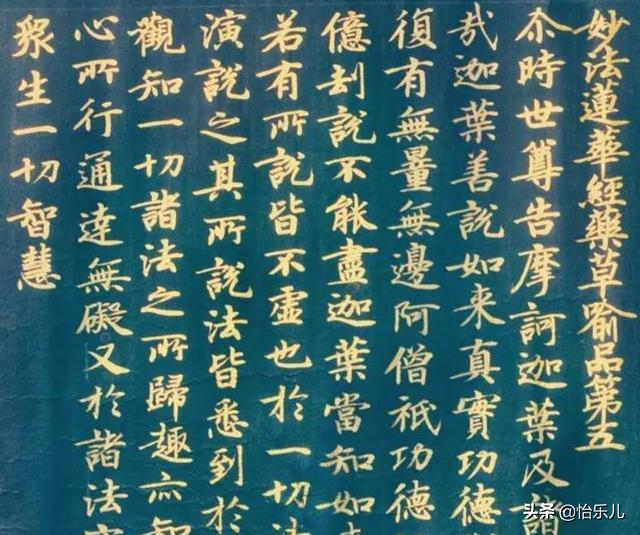 妙法蓮華經藥草喻品第五
尒時世尊告摩訶迦葉及諸
哉迦葉善說如来真實功德
復有無量無邊阿僧祇功德
億劫說不能盡迦葉當知如
若有所說皆不虛也於一切
演說之其所說法皆悉到於
觀知一切諸法之所歸趣亦知
心所行通達無礙又於諸法
眾生一切智慧
头条 @怡乐儿